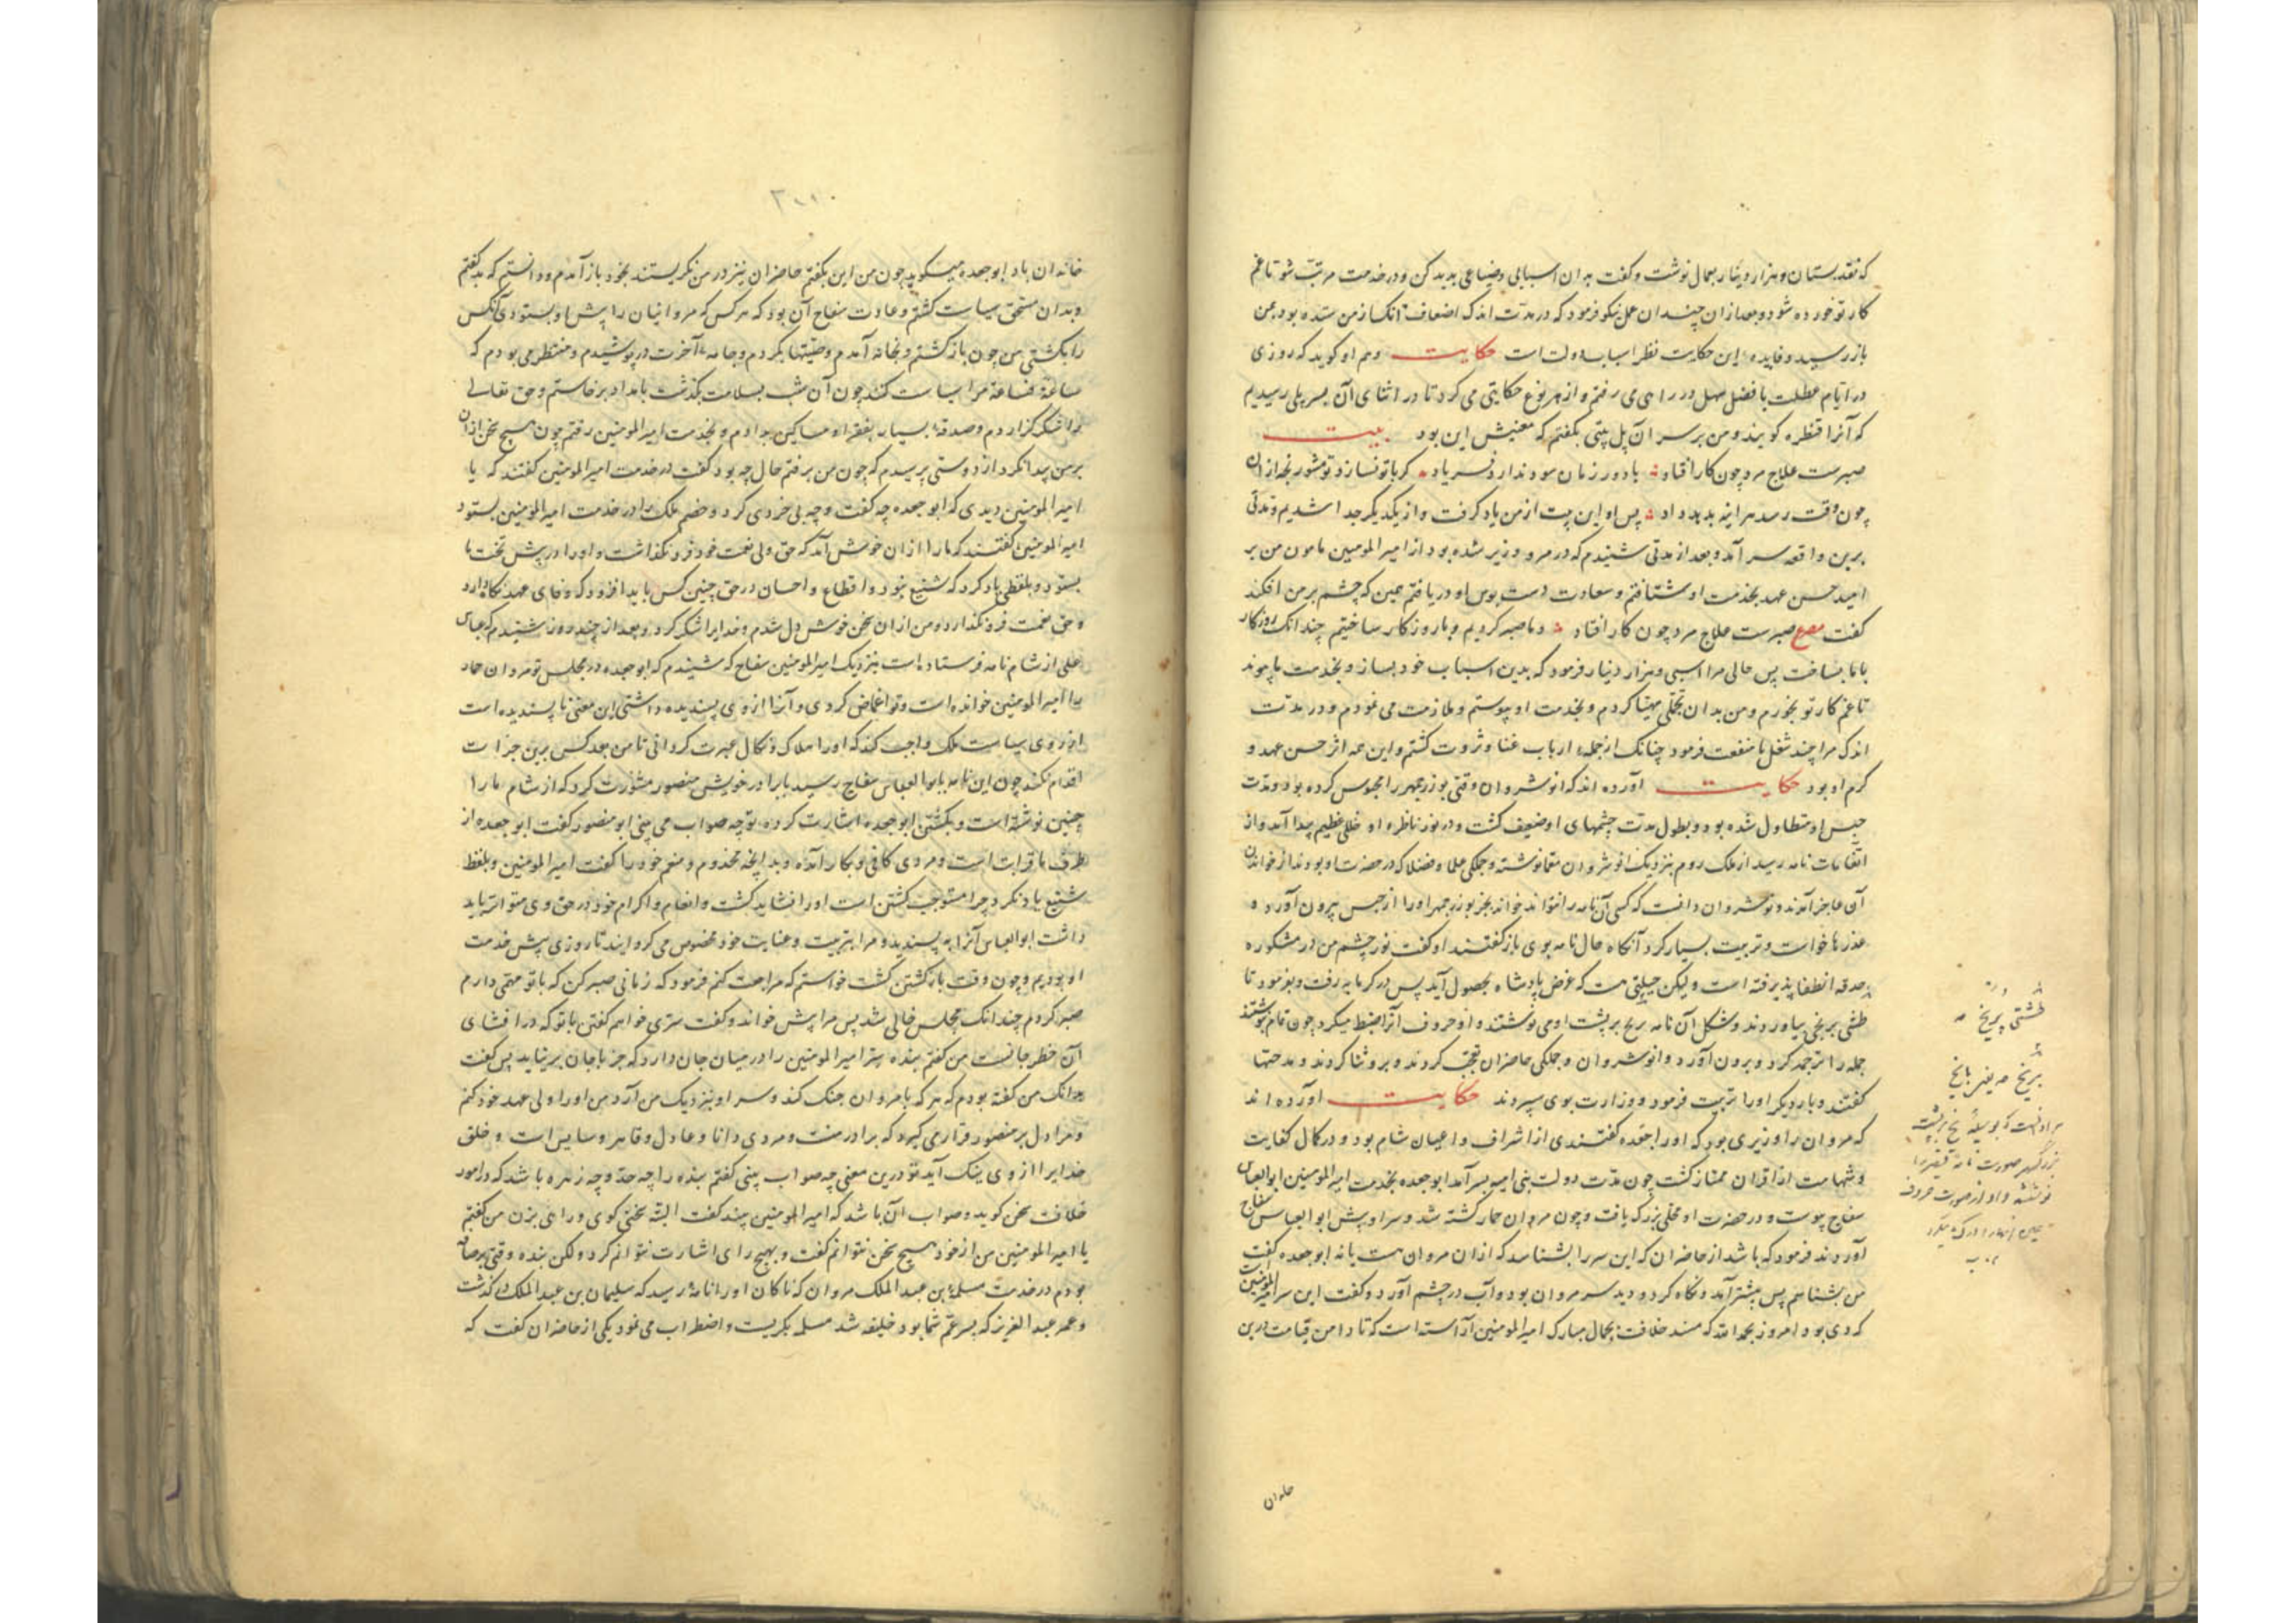 که نقد بستان و هزار دینار بعمال نوشت و گفت بدان اسبابی و ضیاعی بدید کن و در خدمت مرتب شو تا غم
کار تو خورده شود و بعد ازان چندان عمل نیکو فرمود که در مدت اندک اضعاف آنک از من ستده بود بمن
باز رسید و فایده این حکایت نظر اسباب دولت است حکایت و هم او گوید که روزی
در ایام عطلت با فضل سهل در راهی می رفتم و از هر نوع حکایتی می کرد تا در اثنای آن بسر پلی رسیدیم
که آنرا قنطره گویند و من بر سر آن پل بیتی بگفتم که معنیش این بود بیت
صبرست علاج مرد چون کار افتاد با دور زمان سود ندارد فریاد گر با تو نسازد تو مشو رنجه ازان
چون وقت رسد هر اینه بدهد داد پس او این بیت از من یاد گرفت و از یکدیگر جدا شدیم و مدتی
برین واقعه سر آمد و بعد از مدتی شنیدم که در مرو وزیر شده بود از امیر المومنین مامون من بر
امید حسن عهد بخدمت او شتافتم و سعادت دست بوس او دریافتم همین که چشم بر من افکند
گفت مصرع صبرست علاج مرد چون کار افتاد و ما صبر کردیم و با روزگار ساختیم چندانک روزگار
با ما بساخت پس حالی مرا اسبی و هزار دینار فرمود که بدین اسباب خود بساز و بخدمت ما پیوند
تا غم کار تو بخورم و من بدان تجملی مهیا کردم و بخدمت او پیوستم و ملازمت می نمودم و در مدت
اندک مرا چند شغل با منفعت فرمود چنانک از جمله ارباب غنا و ثروت گشتم و این همه اثر حسن عهد و
کرم او بود حکایت آورده اند که انوشروان وقتی بوزرجمهر را محبوس کرده بود و مدت
حبس او متطاول شده بود و بطول مدت چشمهای او ضعیف گشت و در نور ناظره او خللی عظیم پیدا آمد و از
اتفاقات نامه رسید از ملک روم بنزدیک انوشروان معما نوشته و جملگی علما و فضلا که در حضرت او بودند از خواندن
آن عاجز آمدند و نوشروان دانست که کسی آن نامه را نتواند خواند بجز بوزرجمهر او را از حبس بیرون آورد و
عذرها خواست و تربیت بسیار کرد آنگاه حال نامه بوی باز گفتند او گفت نور چشم من در مشکوره
حدقه انطفا پذیرفته است و لیکن حیلتی هست که غرض پادشاه بحصول آید پس در گرمابه رفت و بفرمود تا
طشتی برنجی بیاوردند و شکل آن نامه بریخ بر پشت او می نوشتند و او حروف آنرا ضبط میکرد چون تمام نوشتند
جمله را ترجمه کرد و برون آورد و انوشروان و جملگی حاضران تعجب کردند و برو ثنا کردند و مدحتها
گفتند و بار دیگر او را تربیت فرمود و وزارت بوی سپردند حکایت آورده اند
که مروان را وزیری بود که او را جعده گفتندی از اشراف و اعیان شام بود و در کمال کفایت
و شهامت از اقران ممتاز گشت چون مدت دولت بنی امیه بسر آمد ابو جعده بخدمت امیر المومنین ابو العباس
سفاح پیوست و در حضرت او محلی بزرگ یافت و چون مروان حمار کشته شد و سر او پیش ابو العباس سفاح
آوردند فرمود که باشد از حاضران که این سر را بشناسد که ازان مروان هست یا نه ابو جعده گفت
من بشناسم پس بیشتر آمد و نگاه کرد و دید سر مروان بود و آب در چشم آورد و گفت این سر امیر المومنین
که دی بود امروز بحمد الله که مسند خلافت بجمال مبارک امیر المومنین آراسته است که تا دامن قیامت درین
طشتی بریخ
بریخ یعنی بایخ
مراد آنست که بوسیله یخ بر پشت
بزرگمهر صورت نامه قیصر را
نوشتند و او از صورت حروف
خاندان
خاندان باد ابو جعده میگوید چون من این بگفتم حاضران تیز در من نگریستند بخود باز آمدم و دانستم که بد گفتم
و بدان مستحق سیاست گشتم و عادت سفاح آن بود که هر کس که مروانیان را پیش او بستودی آنکس
را بکشتی من چون باز گشتم و بخانه آمدم وصیتها بکردم و جامه آخرت در پوشیدم و منتظر می بودم که
ساعة فساعة مرا سیاست کند چون آن شب بسلامت بگذشت بامداد برخاستم و حق تعالی
را شکر گزاردم و صدقه بسیار بفقرا و مساکین بدادم و بخدمت امیر المومنین رفتم چون هیچ سخن ازان
بر من پیدا نکرد از دوستی پرسیدم که چون من برفتم حال چه بود گفت در خدمت امیر المومنین گفتند که یا
امیر المومنین دیدی که ابو جعده چه گفت و چه بی خردی کرد و خصم ملک را در خدمت امیر المومنین بستود
امیر المومنین گفتند که ما را ازان خوش آمد که حق ولی نعمت خود فرو نگذاشت و او را در پیش تخت ما
بستود و بلفظی یاد کرد که شنیع نبود و اقطاع و احسان در حق چنین کس باید افزود که وفای عهد نگاه دارد
و حق نعمت فرو نگذارد و من ازان سخن خوش دل شدم و خدایرا شکر کرد و بعد از چند روز شنیدم که عباس
علی از شام نامه فرستاده است بنزدیک امیر المومنین سفاح که شنیدم که ابو جعده در مجلس تو مروان حمار
را امیر المومنین خوانده است و تو اغماض کردی و آنرا از وی پسندیده داشتی این معنی نا پسندیده است
از روی سیاست ملک واجب کند که او را هلاک و نکال عبرت گردانی تا من بعد کس برین جرات
اقدام نکند چون این نامه بابو العباس سفاح رسید با برادر خویش منصور مشورت کرد که از شام ما را
چنین نوشته است و بکشتن ابو جعده اشارت کرده تو چه صواب می بینی ابو منصور گفت ابو جعده از
طرف ما قرابت است و مردی کافی و بکار آمده و بدانچه مخدوم و منعم خود را گفت امیر المومنین و بلفظ
شنیع یاد نکرد چرا مستوجب کشتن است او را نشاید کشت و انعام و اکرام خود در حق وی متواتر باید
داشت ابو العباس آنرا به پسندید و مرا بتربیت و عنایت خود مخصوص می گردانید تا روزی پیش خدمت
او بودیم و چون وقت باز گشتن گشت خواستم که مراجعت کنم فرمود که زمانی صبر کن که با تو مهمی دارم
صبر کردم چندانک مجلس خالی شد پس مرا پیش خواند و گفت سری خواهم گفتن با تو که در افشای
آن خطر جانست من گفتم بنده سر امیر المومنین را در میان جان دارد که جز با جان بر نیاید پس گفت
بدانک من گفته بودم که هر که با مروان جنگ کند و سر او بنزدیک من آرد من او را ولی عهد خود کنم
و مرا دل بر منصور قرار می گیرد که برادر منست و مردی دانا و عادل و قاهر و سایس است و خلق
خدایرا از وی نیک آید تو درین معنی چه صواب بینی گفتم بنده را چه حد و چه زهره باشد که در امور
خلافت سخن گوید و صواب آن باشد که امیر المومنین بیند گفت البته سخنی گوی و رائی بزن من گفتم
یا امیر المومنین من از خود هیچ سخن نتوانم گفت و بهیچ رای اشارت نتوانم کرد و لکن بنده وقتی برصافه
بودم در خدمت مسلمة بن عبد الملک مروان که ناگاه او را نامه رسید که سلیمان بن عبد الملک در گذشت
و عمر عبد العزیز که پسر عم شما بود خلیفه شد مسلمه بگریست و اضطراب می نمود یکی از حاضران گفت که